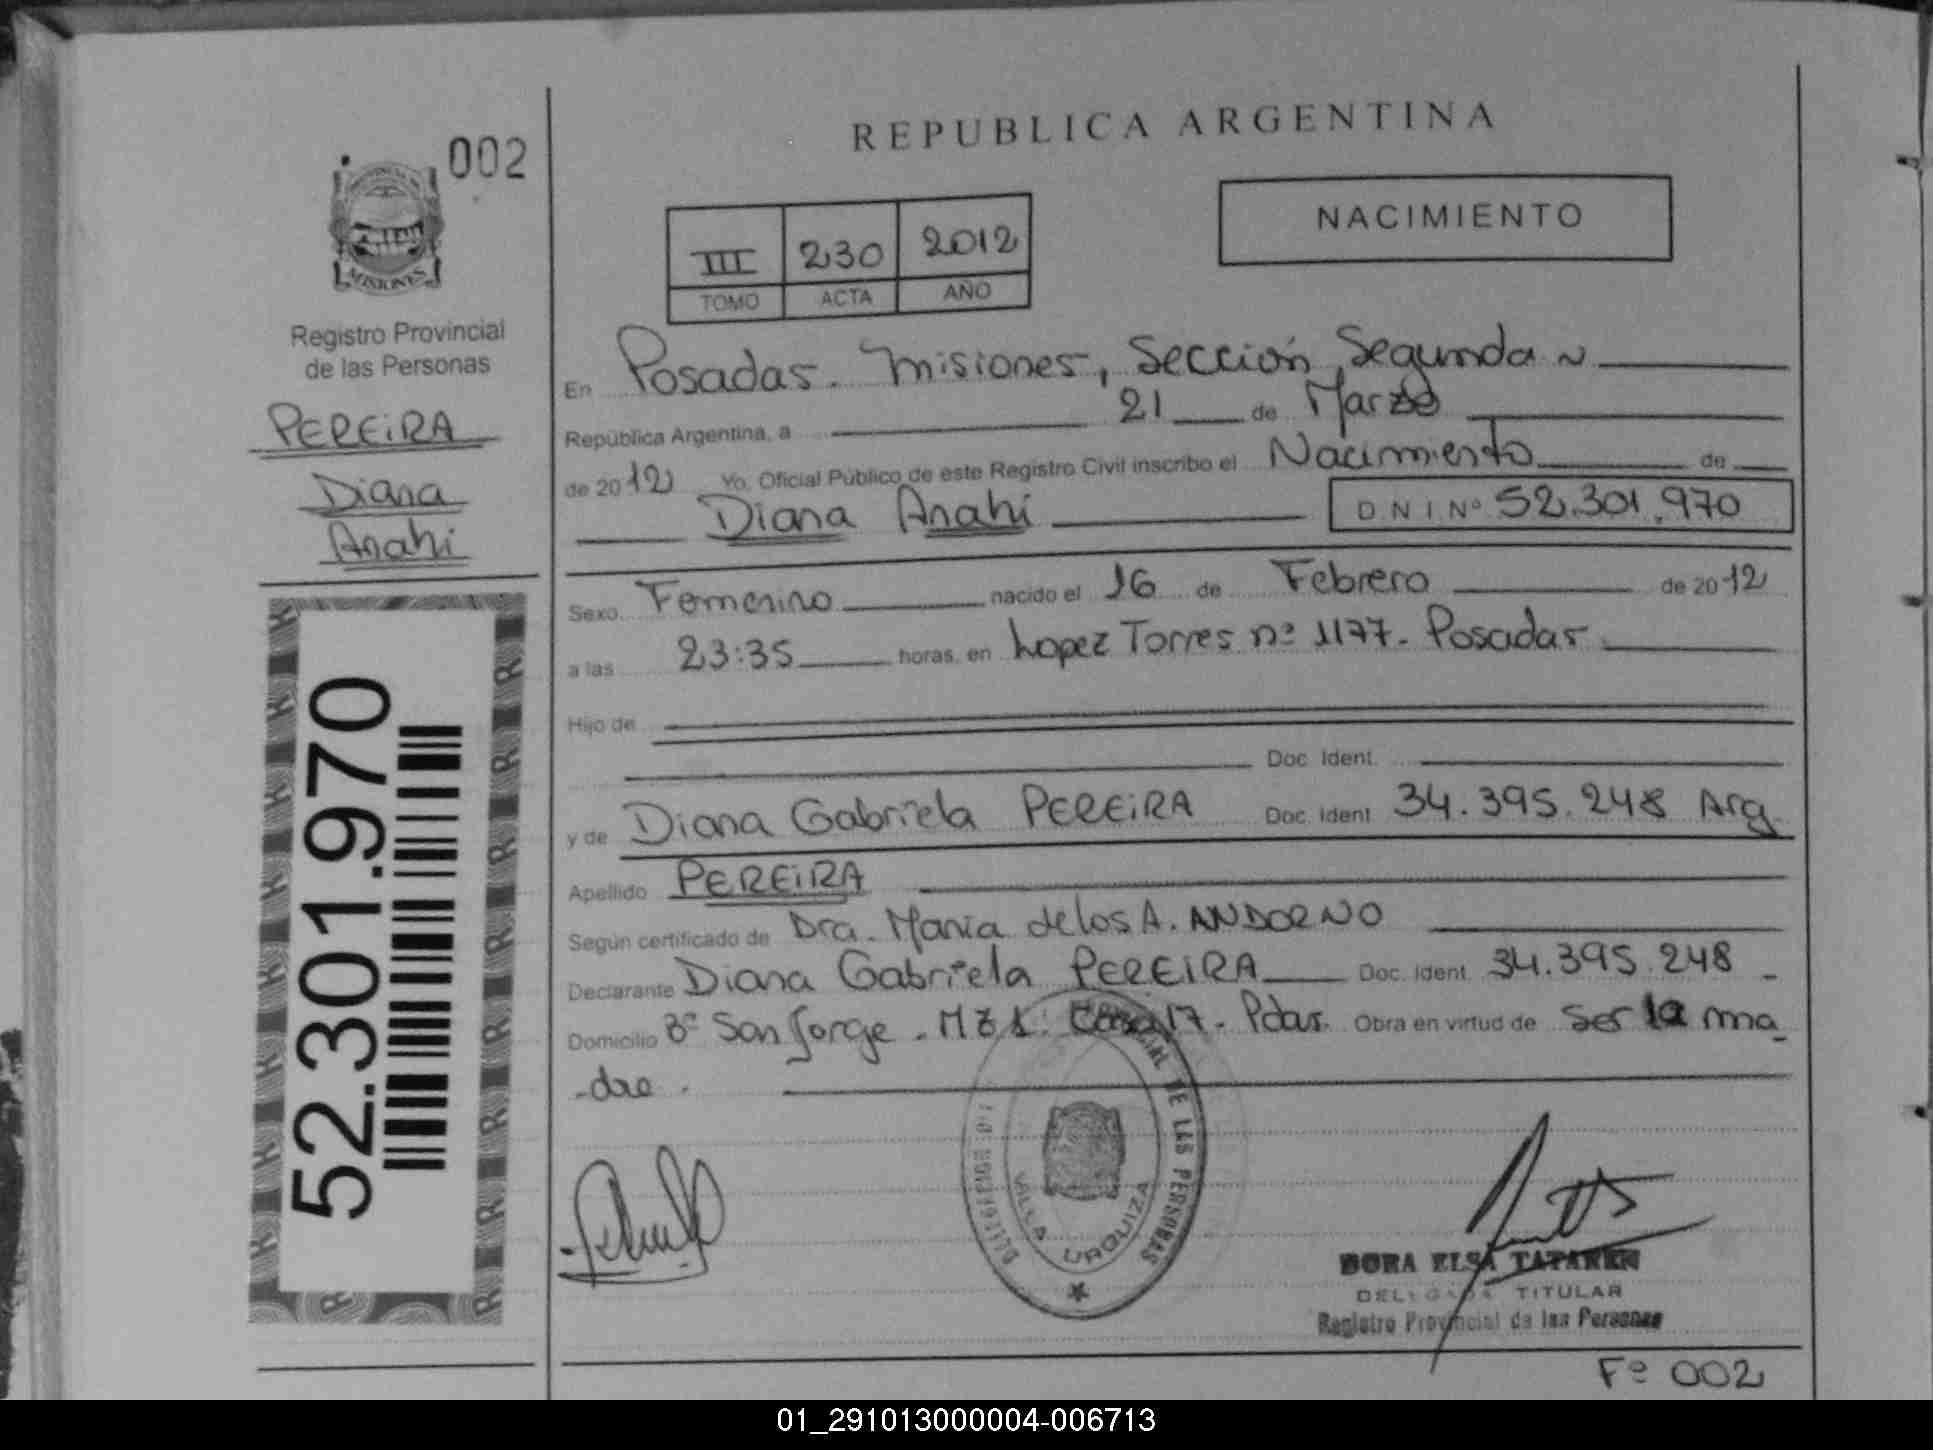 002
MISIONES
Registro Provincial
de las Personas
PEREIRA
Diana
Anahi
52.301.970
REPUBLICA ARGENTINA
III 230 2012
TOMO ACTA AÑO
NACIMIENTO
En Posadas. Misiones, Sección Segunda
República Argentina, a 21 de Marzo
de 2012 Yo, Oficial Público de este Registro Civil inscribo el Nacimiento de
Diana Anahi D N I Nº 52.301.970
Sexo Femenino nacido el 16 de Febrero de 2012
a las 23:35 horas, en Lopez Torres nº 1177. Posadas
Hijo de
Doc. Ident.
y de Diana Gabriela PEREIRA Doc. Ident. 34.395.248 Arg.
Apellido PEREIRA
Según certificado de Dra. Maria de los A. ANDORNO
Declarante Diana Gabriela PEREIRA Doc. Ident. 34.395.248
Domicilio Bº San Jorge. MZ 1. Casa 17. Pdas. Obra en virtud de ser la ma
-dre.
DE LAS PERSONAS
VILLA URQUIZA
DORA ELSA TATAREN
DELEGADA TITULAR
Registro Provincial de las Personas
Fº 002
01_291013000004-006713